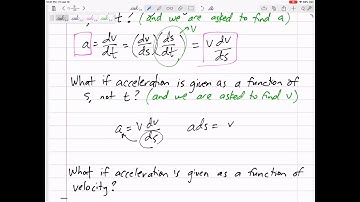 t? (and we are asked to find a)
a = dv/dt = (dv/ds)(ds/dt) = v dv/ds
v
What if acceleration is given as a function of
s, not t? (and we are asked to find v)
a = v dv/ds    ads = v
What if acceleration is given as a function of
velocity?